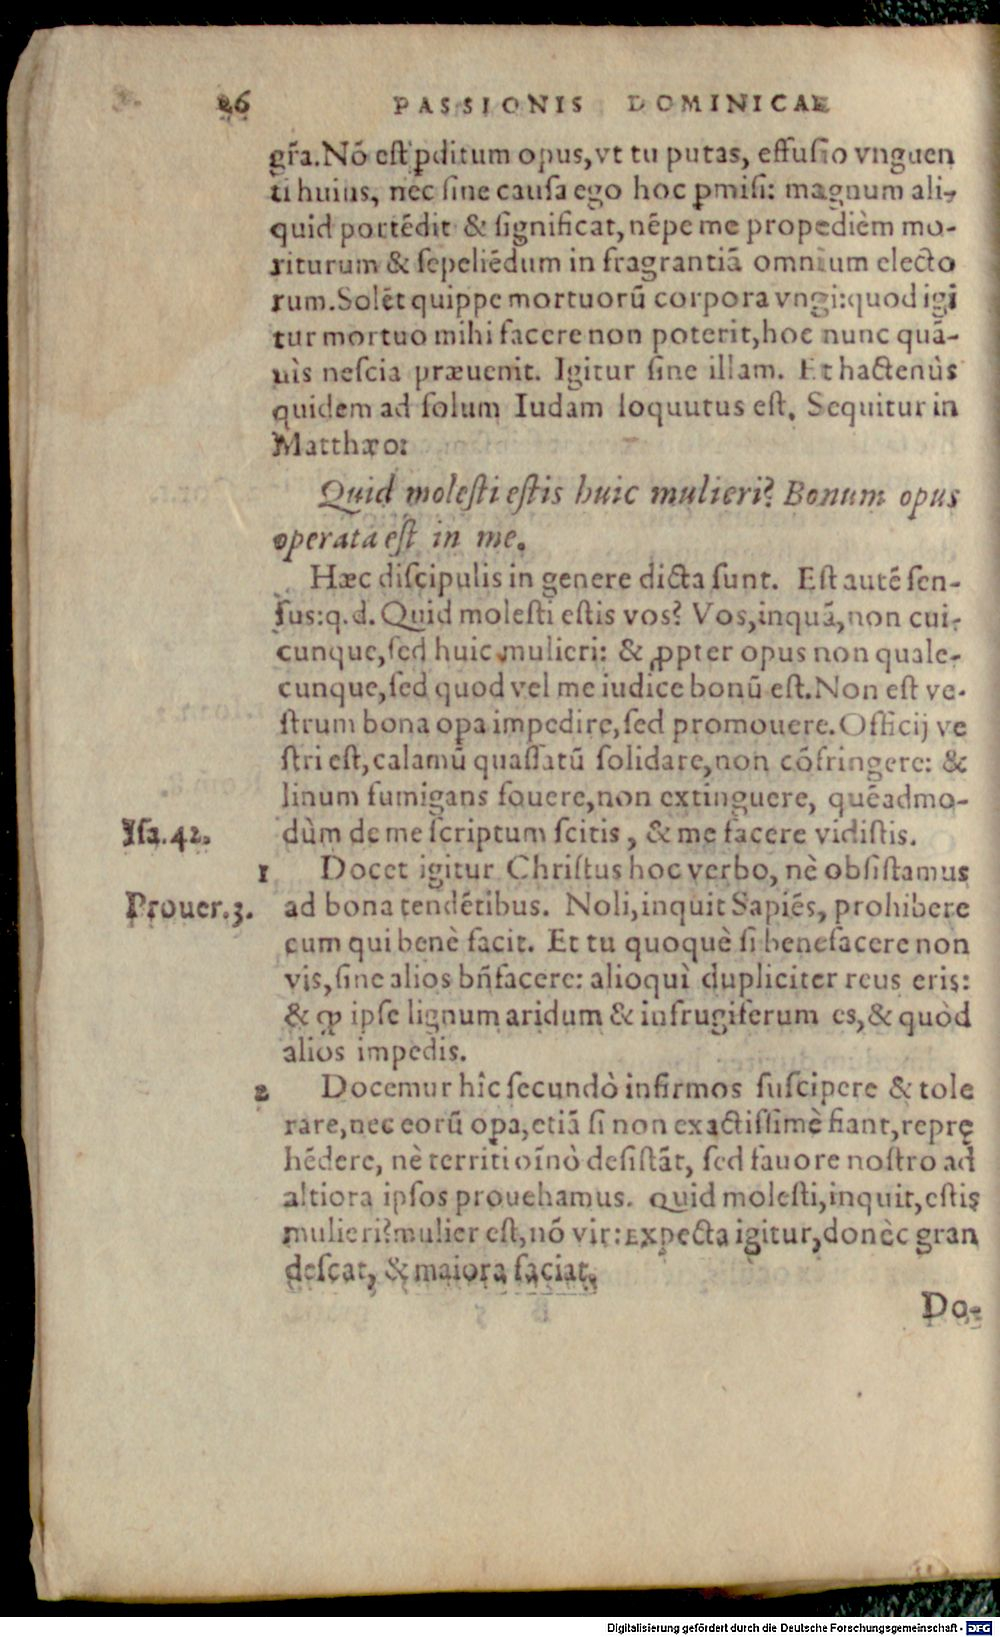 26 PASSIONIS DOMINICAE
gr̃a. Nõ est ꝑditum opus, vt tu putas, effusio vnguen
ti huius, nec sine causa ego hoc ꝑmisi: magnum ali-
quid portẽdit & significat, nẽpe me propedièm mo-
riturum & sepeliẽdum in fragrantiã omnium electo
rum. Solẽt quippe mortuorũ corpora vngi: quod igi
tur mortuo mihi facere non poterit, hoc nunc quã-
uìs nescia præuenit. Igitur sine illam. Et hactenùs
quidem ad solum Iudam loquutus est. Sequitur in
Matthæo:
Quid molesti estis huic mulieri? Bonum opus
operata est in me.
Hæc discipulis in genere dicta sunt. Est autẽ sen-
sus: q.d. Quid molesti estis vos? Vos, inquã, non cui-
cunque, sed huic mulieri: & ꝓpter opus non quale-
cunque, sed quod vel me iudice bonũ est. Non est ve-
strum bona oꝑa impedire, sed promouere. Officij ve
stri est, calamũ quassatũ solidare, non cõfringere: &
linum fumigans fouere, non extinguere, quẽadmo-
Isa. 42. dùm de me scriptum scitis, & me facere vidistis.
1 Docet igitur Christus hoc verbo, nè obsistamus
Prouer. 3. ad bona tendẽtibus. Noli, inquit Sapiẽs, prohibere
eum qui benè facit. Et tu quoquè si benefacere non
vis, sine alios bñfacere: alioquì dupliciter reus eris:
& ꝙ ipse lignum aridum & infrugiferum es, & quòd
alios impedis.
2 Docemur hîc secundò infirmos suscipere & tole
rare, nec eorũ oꝑa, etiã si non exactissimè fiant, reprę
hẽdere, nè territi oĩnò desistãt, sed fauore nostro ad
altiora ipsos prouehamus. Quid molesti, inquit, estis
mulieri? mulier est, nõ vir: expecta igitur, donèc gran
descat, & maiora faciat.
Do-
Digitalisierung gefördert durch die Deutsche Forschungsgemeinschaft - DFG